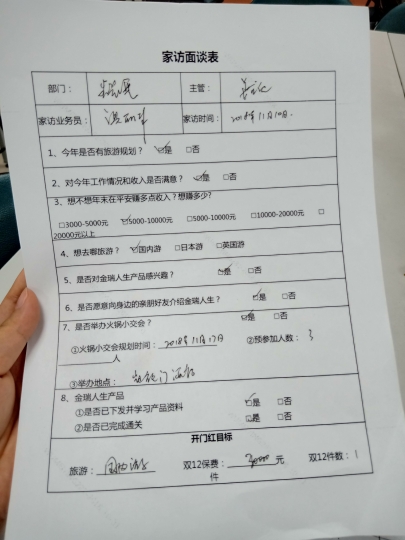 家访面谈表
部门： 主管：
家访业务员： 家访时间： 2018年11月10日.
1、今年是否有旅游规划？ ☑是 □否
2、对今年工作情况和收入是否满意？ ☑是 □否
3、想不想年末在平安赚多点收入？想赚多少？
□3000-5000元 ☑5000-10000元 □5000-10000元 □10000-20000元 □
20000元以上
4、想去哪旅游？ ☑国内游 □日本游 □英国游
5、是否对金瑞人生产品感兴趣？ ☑是 □否
6、是否愿意向身边的亲朋好友介绍金瑞人生？ ☑是 □否
7、是否举办火锅小交会？ ☑是 □否
①火锅小交会规划时间： 2018年11月17日 ②预参加人数： 3
人
③举办地点：
8、金瑞人生产品
①是否已下发并学习产品资料 ☑是 □否
②是否已完成通关 ☑是 □否
开门红目标
旅游： 国内游 双12保费： 30000 元 双12件数： 1
件